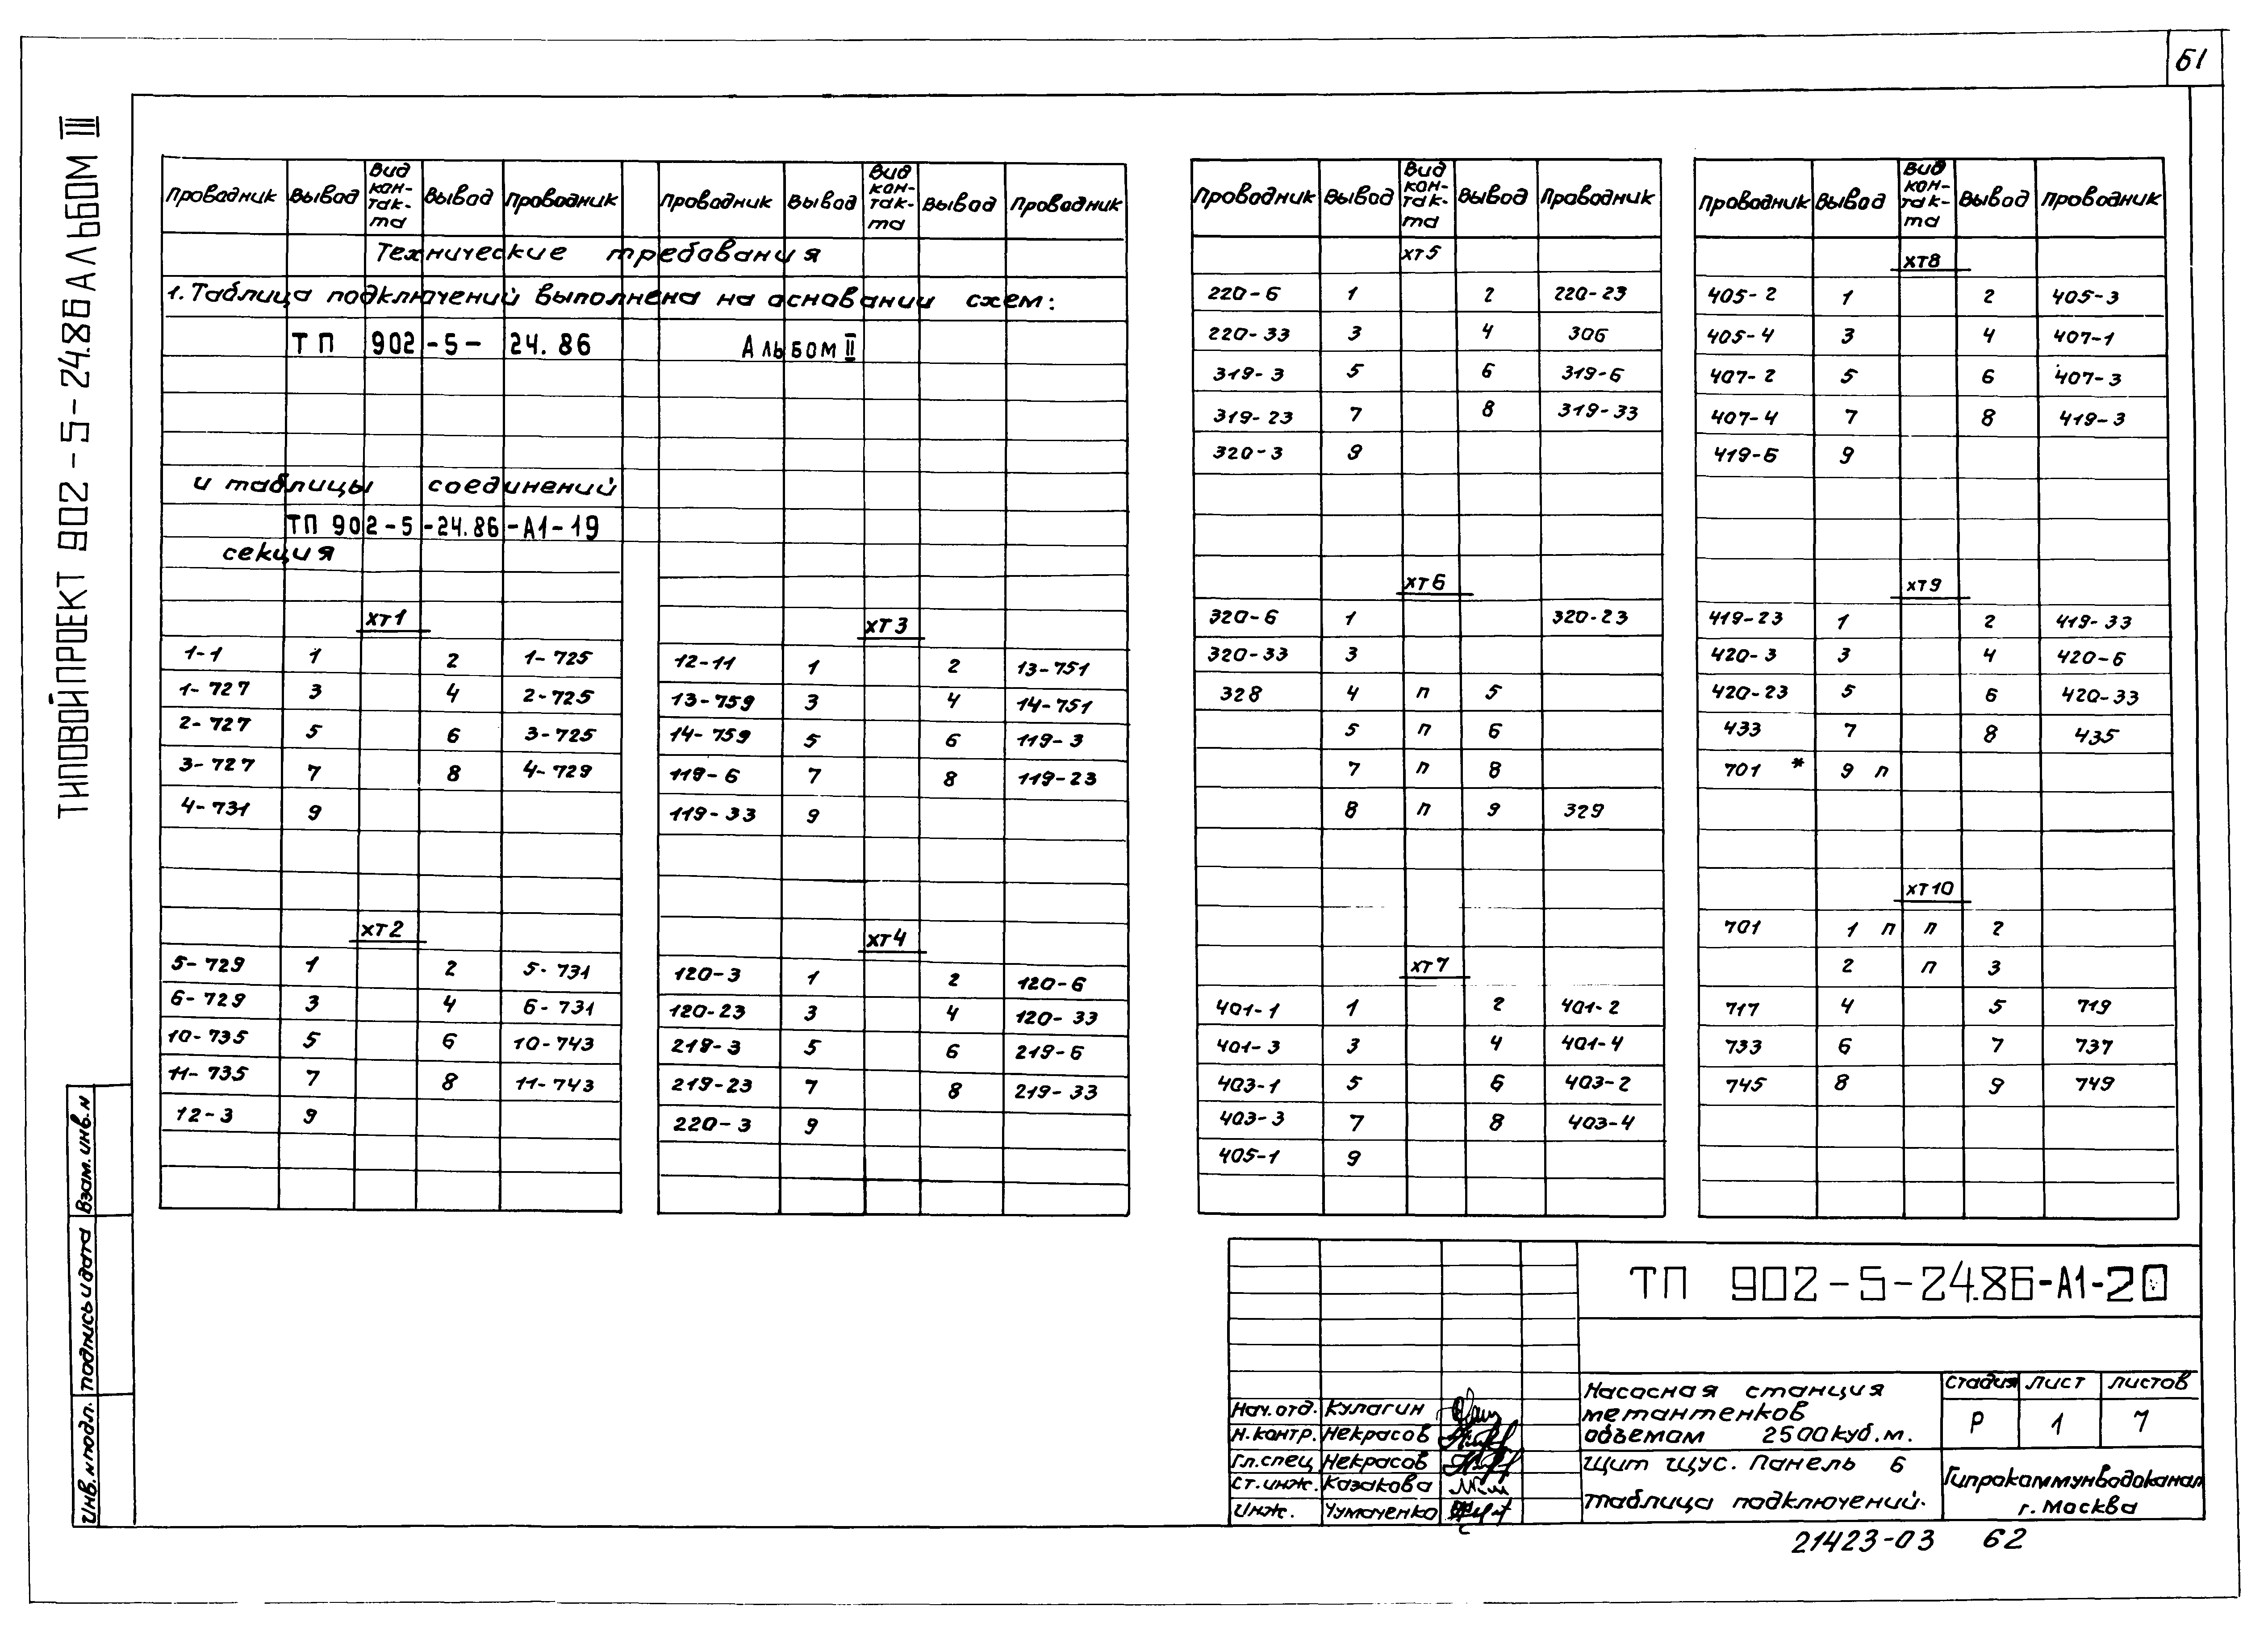 61
ТИПОВОЙ ПРОЕКТ 902-5-24.86 АЛЬБОМ III
Проводник Вывод Вид кон-так-та Вывод Проводник
Технические требования
1. Таблица подключений выполнена на основании схем:
ТП 902-5-24.86 Альбом II
и таблицы соединений
ТП 902-5-24.86-А1-19
секция
ХТ1
1-1 1 2 1-725
1-727 3 4 2-725
2-727 5 6 3-725
3-727 7 8 4-729
4-731 9
ХТ2
5-729 1 2 5-731
6-729 3 4 6-731
10-735 5 6 10-743
11-735 7 8 11-743
12-3 9
Проводник Вывод Вид кон-так-та Вывод Проводник
ХТ3
12-11 1 2 13-751
13-759 3 4 14-751
14-759 5 6 119-3
119-6 7 8 119-23
119-33 9
ХТ4
120-3 1 2 120-6
120-23 3 4 120-33
219-3 5 6 219-6
219-23 7 8 219-33
220-3 9
Проводник Вывод Вид кон-так-та Вывод Проводник
ХТ5
220-6 1 2 220-23
220-33 3 4 306
319-3 5 6 319-6
319-23 7 8 319-33
320-3 9
ХТ6
320-6 1 320-23
320-33 3
328 4 п 5
5 п 6
7 п 8
8 п 9 329
ХТ7
401-1 1 2 401-2
401-3 3 4 401-4
403-1 5 6 403-2
403-3 7 8 403-4
405-1 9
Проводник Вывод Вид кон-так-та Вывод Проводник
ХТ8
405-2 1 2 405-3
405-4 3 4 407-1
407-2 5 6 407-3
407-4 7 8 419-3
419-6 9
ХТ9
419-23 1 2 419-33
420-3 3 4 420-6
420-23 5 6 420-33
433 7 8 435
701 * 9 п
ХТ10
701 1 п п 2
2 п 3
717 4 5 719
733 6 7 737
745 8 9 749
Инв. N подл. Подпись и дата Взам. инв. N
ТП 902-5-24.86-А1-20
Нач. отд. Кулагин
Н. контр. Некрасов
Гл. спец Некрасов
Ст. инж. Казакова
Инж. Чумаченко
Насосная станция
метантенков
объемом 2500 куб. м.
Щит ЩУС. Панель 6
Таблица подключений.
Стадия Лист Листов
Р 1 7
Гипрокоммунводоканал
г. Москва
21423-03 62